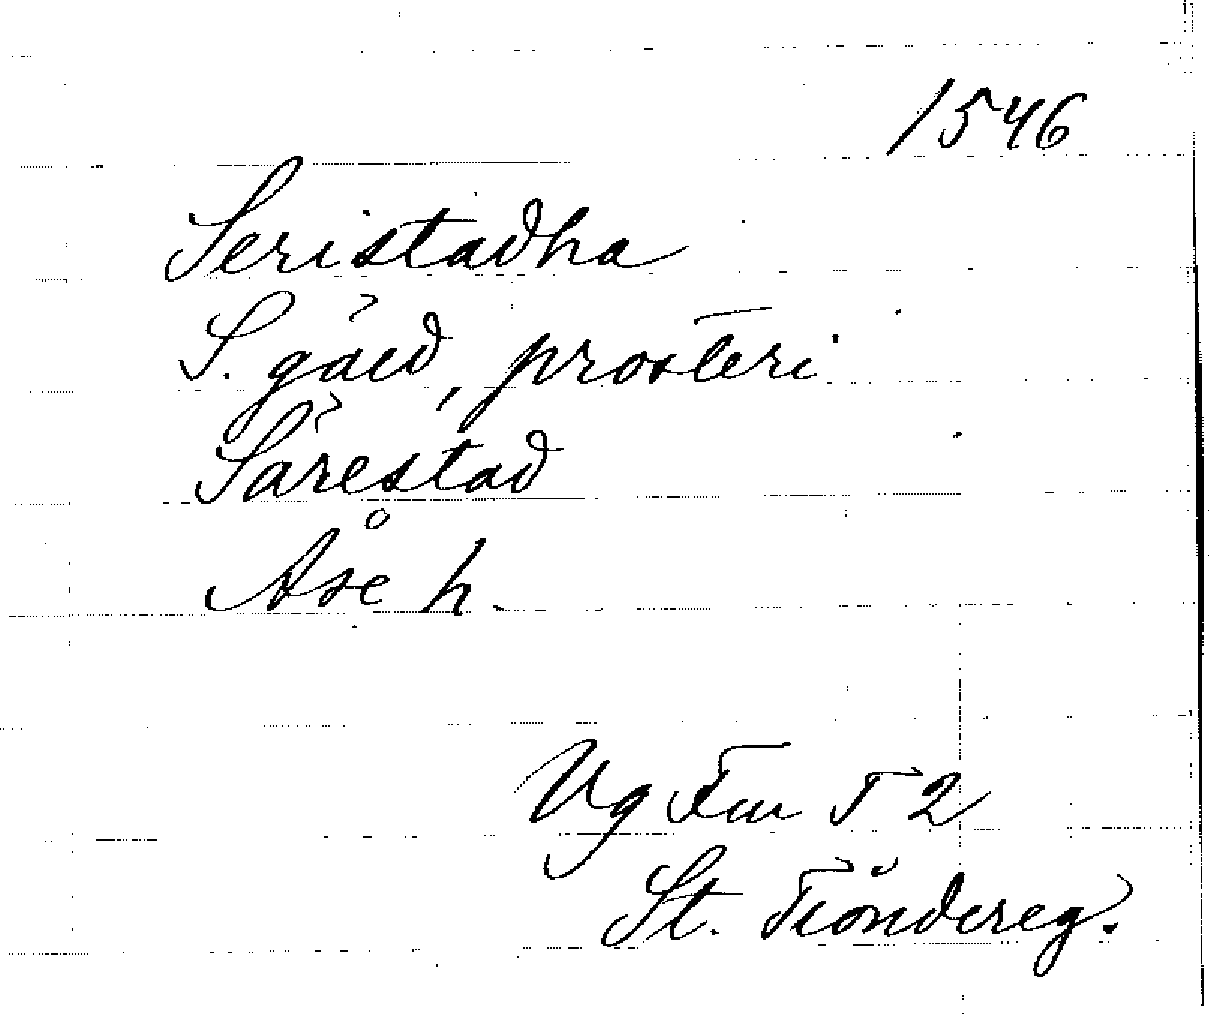 1546
Seristadha
S. gäld, prosteri
Särestad
Åse h.
Vg Fm T 2
St. Tiöndereg.